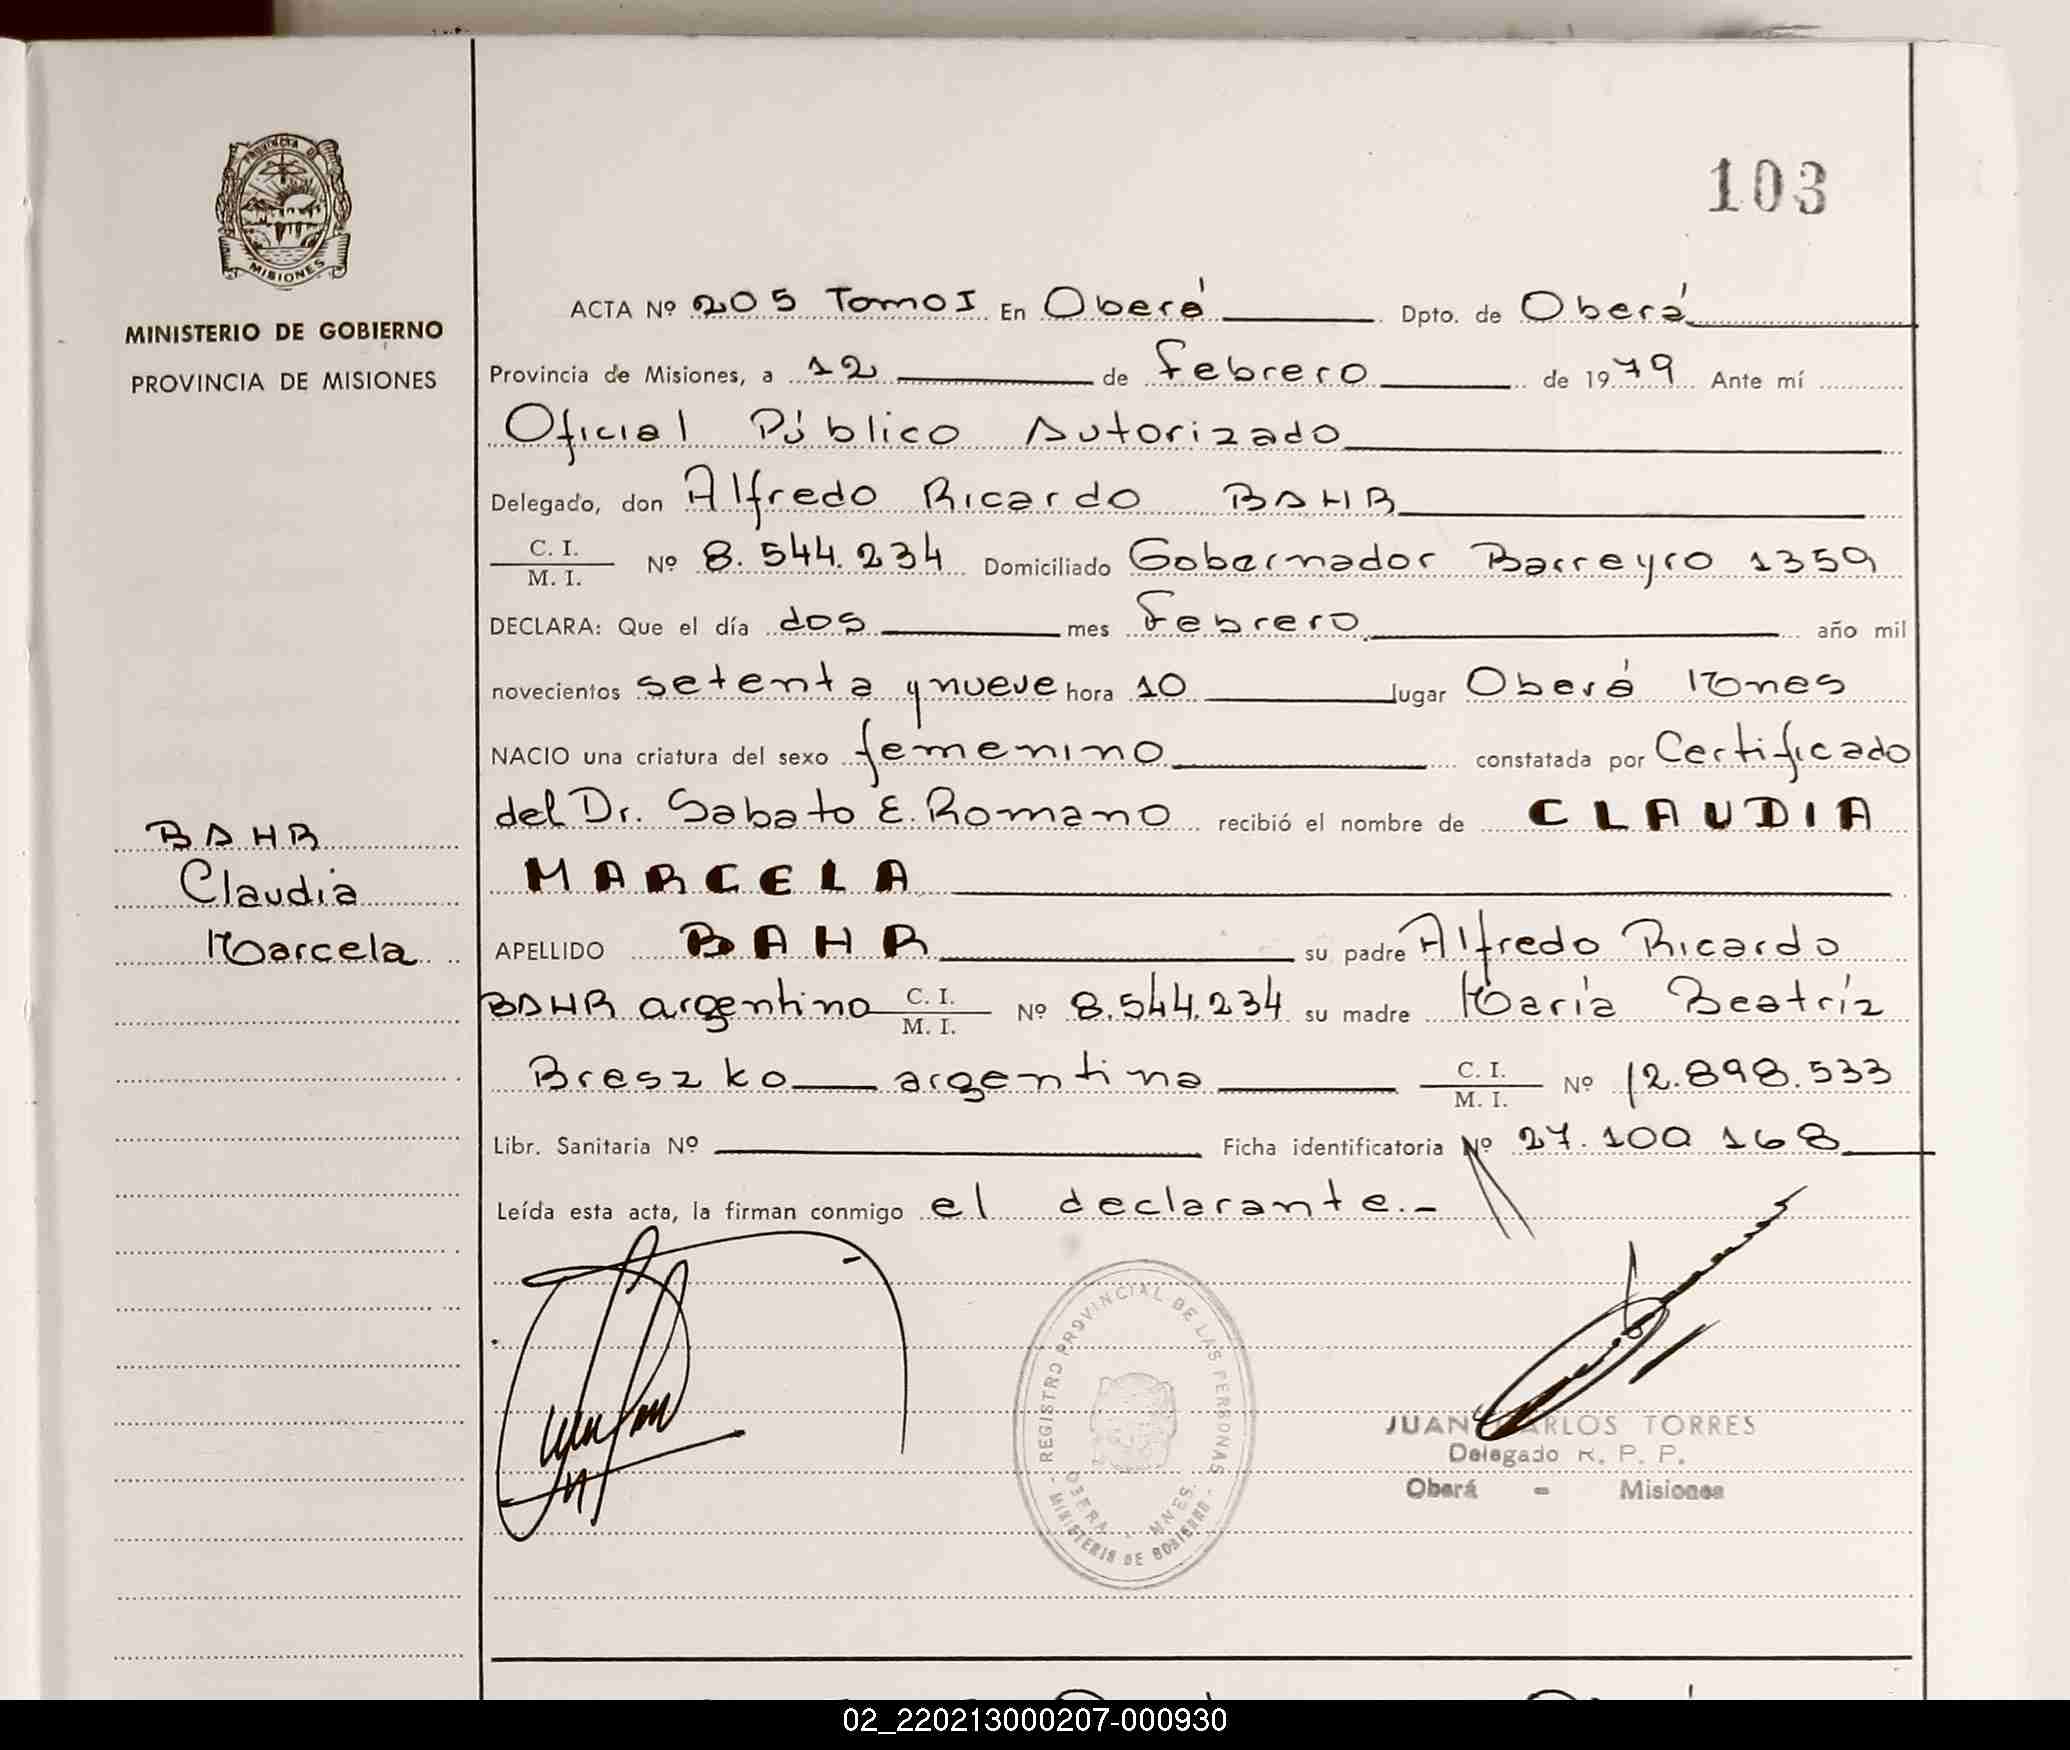 PROVINCIA DE
MISIONES
MINISTERIO DE GOBIERNO
PROVINCIA DE MISIONES
BAHR
Claudia
Marcela
103
ACTA Nº 205 Tomo I En Oberá Dpto. de Oberá
Provincia de Misiones, a 12 de Febrero de 1979 Ante mí
Oficial Público Autorizado
Delegado, don Alfredo Ricardo BAHR
C. I.
M. I. Nº 8.544.234 Domiciliado Gobernador Barreyro 1359
DECLARA: Que el día dos mes Febrero año mil
novecientos setenta y nueve hora 10 lugar Oberá Mnes
NACIO una criatura del sexo femenino constatada por Certificado
del Dr. Sabato E. Romano recibió el nombre de CLAUDIA
MARCELA
APELLIDO BAHR su padre Alfredo Ricardo
BAHR argentino C. I. M. I. Nº 8.544.234 su madre María Beatríz
Breszko argentina C. I. M. I. Nº 12.898.533
Libr. Sanitaria Nº Ficha identificatoria Nº 27.100 168
Leída esta acta, la firman conmigo el declarante.-
REGISTRO PROVINCIAL DE LAS PERSONAS
OBERA - MNES.
MINISTERIO DE GOBIERNO
JUAN CARLOS TORRES
Delegado R. P. P.
Oberá - Misiones
02_220213000207-000930